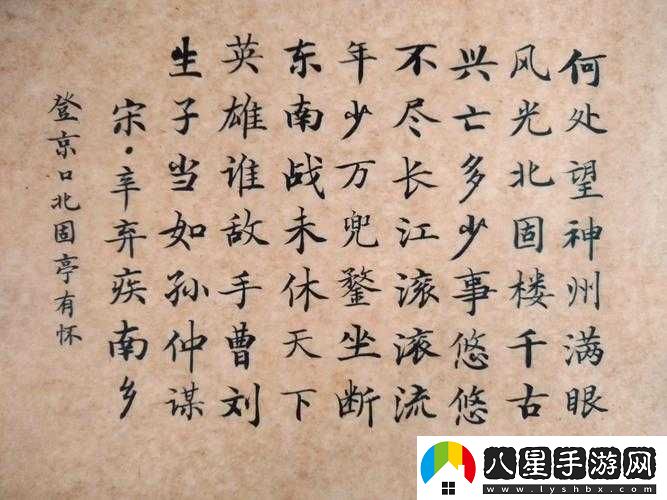 何处望神州满眼
风光北固楼千古
兴亡多少事悠悠
不尽长江滚滚流
年少万兜鍪坐断
东南战未休天下
英雄谁敌手曹刘
生子当如孙仲谋
宋·辛弃疾南乡
登京口北固亭有怀
八星手游网
www.lyshbx.com